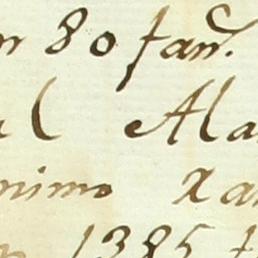 80 fan.
l Ala
nimo Xa
1385 f